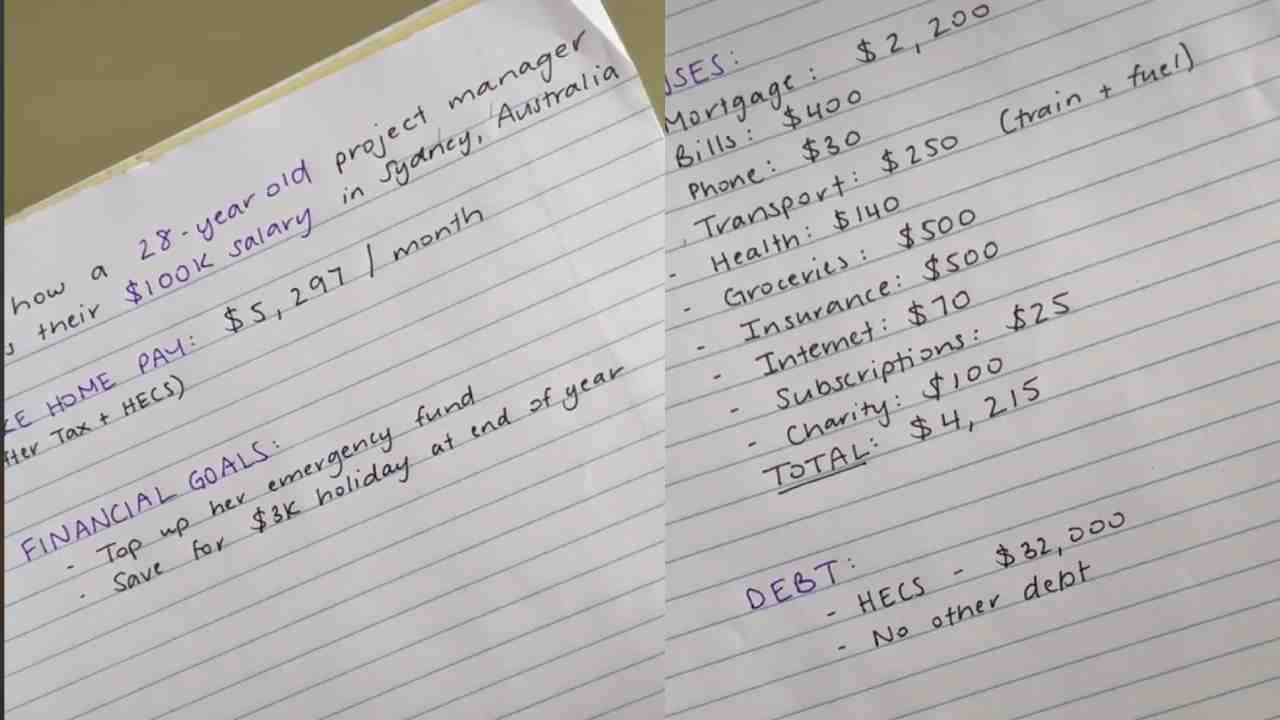 how a 28-year old project manager
their $100K salary in Sydney, Australia
HOME PAY: $5,297 / month
Tax + HECS)
FINANCIAL GOALS:
- Top up her emergency fund
- Save for $3K holiday at end of year
Mortgage: $2,200
Bills: $400
Phone: $30
Transport: $250 (train + fuel)
- Health: $140
- Groceries: $500
- Insurance: $500
- Internet: $70
- Subscriptions: $25
- Charity: $100
TOTAL: $4,215
DEBT:
- HECS - $32,000
- No other debt